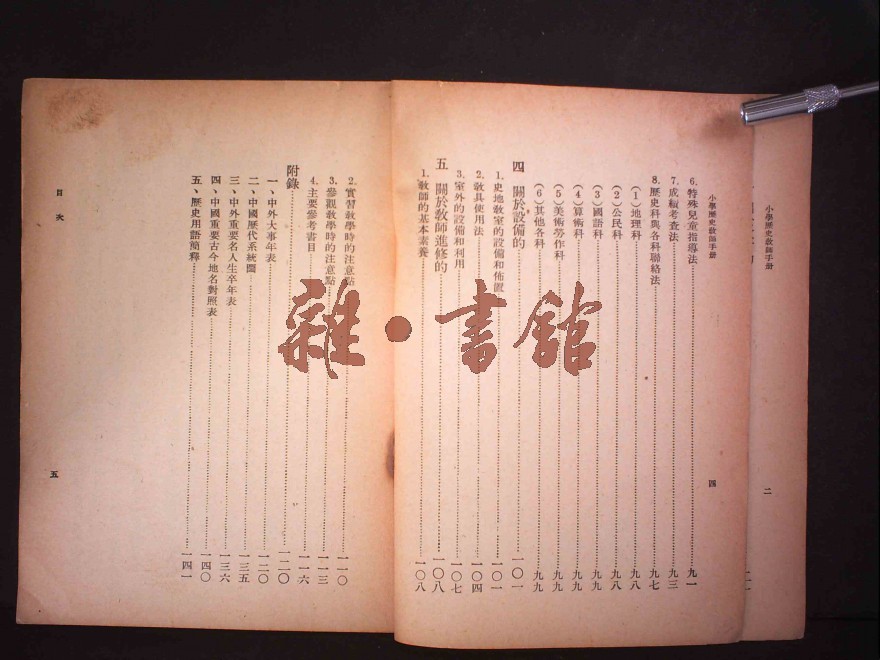 小學歷史敎師手册
二
小學歷史敎師手册
6. 特殊兒童指導法 九一
7. 成績考查法 九三
8. 歷史科與各科聯絡法 九七
（1）地理科 九八
（2）公民科 九八
（3）國語科 九九
（4）算術科 九九
（5）美術勞作科 九九
（6）其他各科 九九
四 關於設備的 一〇一
1. 史地敎室的設備和佈置 一〇一
2. 敎具使用法 一〇四
3. 室外的設備和利用 一〇七
五 關於敎師進修的 一〇八
1. 敎師的基本素養 一〇八
四
2. 實習敎學時的注意點 一一〇
3. 參觀敎學時的注意點 一一三
4. 主要參考書目 一一六
附錄 一二〇
一、中外大事年表 一二〇
二、中國歷代系統圖 一三五
三、中外重要名人生卒年表 一三六
四、中國重要古今地名對照表 一四〇
五、歷史用語簡釋 一四一
目次
五
雜·書館